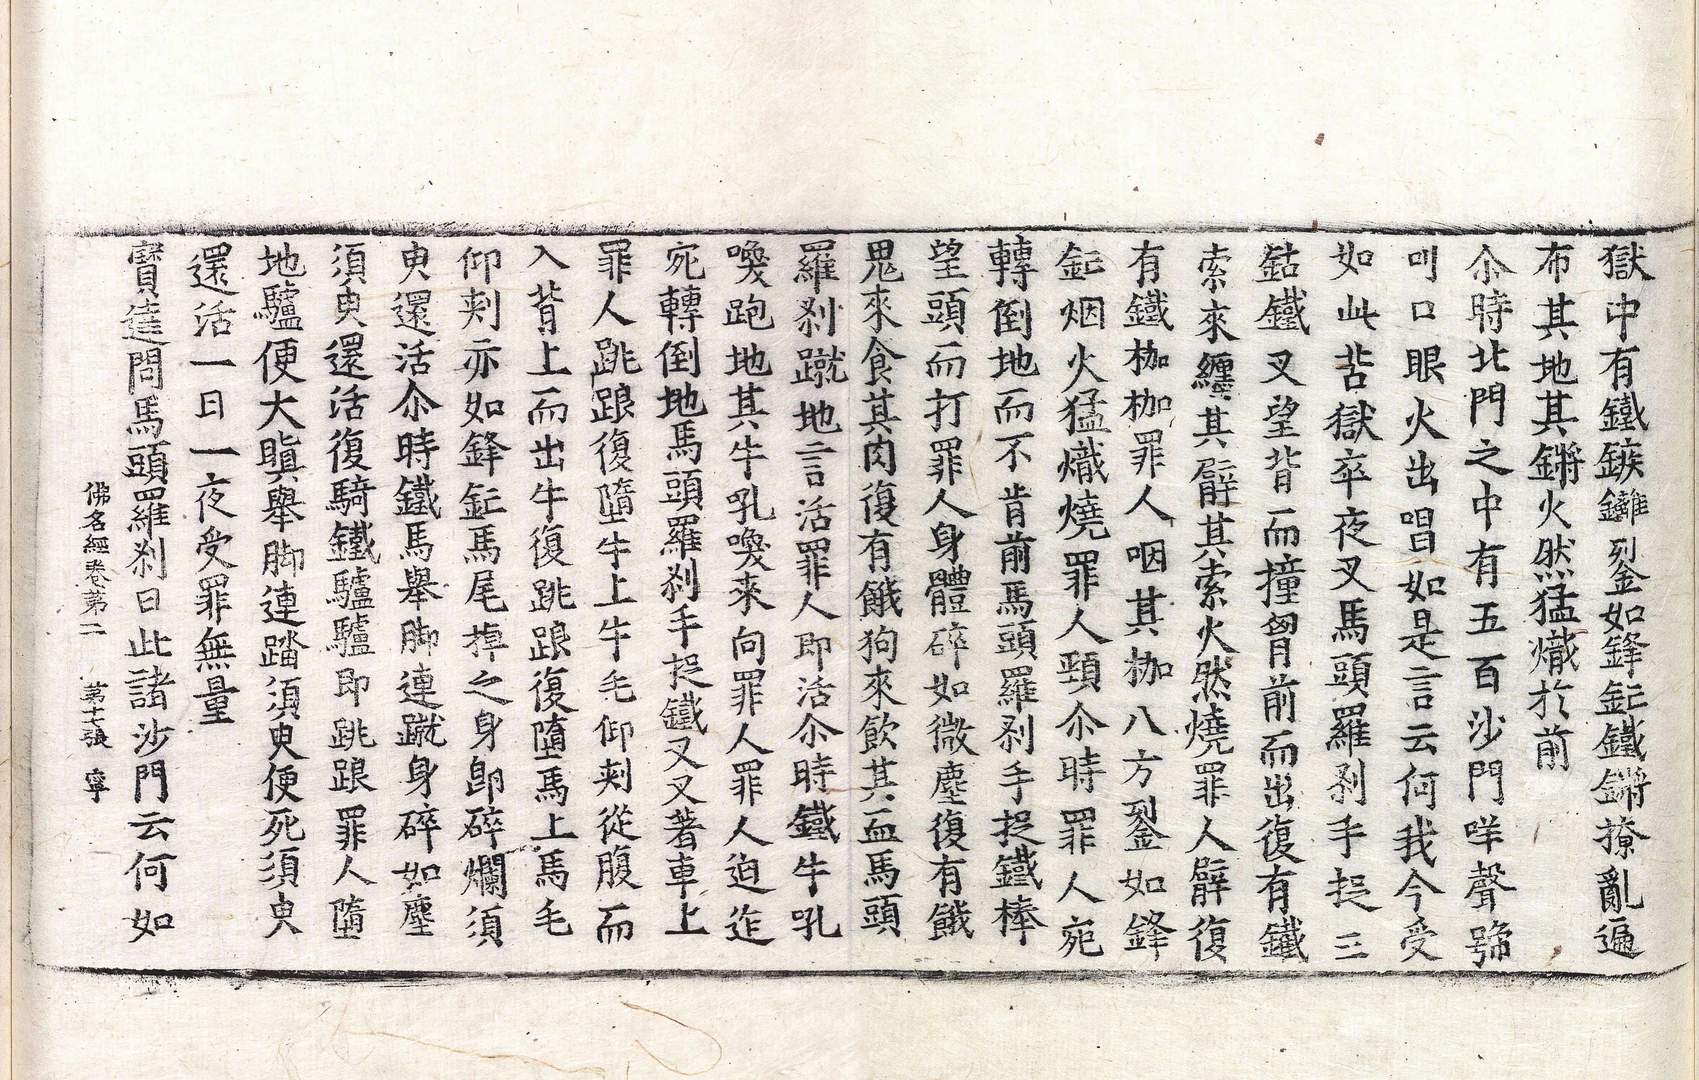 獄中有鐵鏃鑵釖如鋒釯鐵鏘撩亂遍
布其地其鏘火然猛熾於前
尒時北門之中有五百沙門咩聲號
叫口眼火出唱如是言云何我今受
如此苦獄卒夜叉馬頭羅剎手捉三
鈷鐵叉望背而撞胷前而出復有鐵
索來纏其臂其索火然燒罪人臂復
有鐵枷枷罪人咽其枷八方釖如鋒
釯烟火猛熾燒罪人頸尒時罪人宛
轉倒地而不肯前馬頭羅剎手捉鐵棒
望頭而打罪人身體碎如微塵復有餓
鬼來食其肉復有餓狗來飲其血馬頭
羅剎蹴地言活罪人即活尒時鐵牛吼
喚跑地其牛吼喚來向罪人罪人迫迮
宛轉倒地馬頭羅剎手捉鐵叉叉著車上
罪人跳踉復墮牛上牛毛仰刺從腹而
入背上而出牛復跳踉復墮馬上馬毛
仰刺亦如鋒釯馬尾掉之身即碎爛須
臾還活尒時鐵馬舉脚連蹴身碎如塵
須臾還活復騎鐵驢驢即跳踉罪人墮
地驢便大瞋舉脚連踏須臾便死須臾
還活一日一夜受罪無量
寶達問馬頭羅剎曰此諸沙門云何如
佛名經卷第二 第十七張 寧